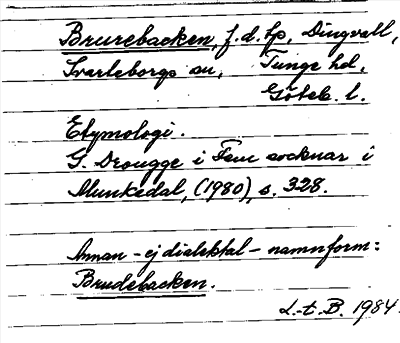 Brurebacken, f.d. tp, Dingvall,
Svarteborgs sn, Tunge hd,
Göteb. l.
Etymologi.
G. Drougge i Fem socknar i
Munkedal, (1980), s. 328.
Annan - ej dialektal - namnform:
Brudebacken.
L.-t. B. 1984.